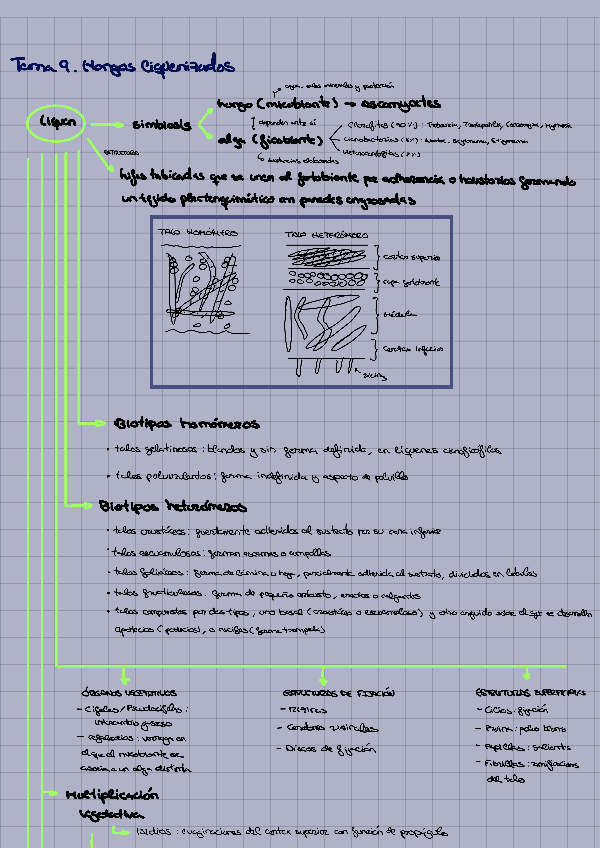 Tema 9. Hongos liquenizados
agua, sales minerales y protección
liquen
simbiosis
hongo (micobionte) → ascomycetes
dependen entre sí
alga (ficobionte)
Clorofitas (90%): Trebouxia, Trentepohlia,
Cianobacterias (8%): Nostoc, Scytonema, Stigonema
(2%)
sustancias elaboradas
estructura
hifas tabicadas que se unen al fotobionte por adherencia o haustorios formando
un tejido plectenquimático con paredes engrosadas
TALO HOMÓMERO
TALO HETERÓMERO
cortex superior
capa gonidial
médula
cortex inferior
ricinas
Biotipos homómeros
• talos gelatinosos: blandos y sin forma definida, en líquenes cianofícófilos
• talos pulverulentos: forma indefinida y aspecto de polvillo
Biotipos heterómeros
• talos crustáceos: fuertemente adheridos al sustrato por su cara inferior
• talos escuamulosos: forman escamas o ampollas
• talos foliáceos: forma de lámina u hoja, parcialmente adherida al sustrato, divididos en lóbulos
• talos fruticulosos: forma de pequeño arbusto, erectos o colgantes
• talos compuestos por dos tipos, uno basal (crustáceo o escuamuloso) y otro erguido sobre el que se desarrollan
apotecios (podecios), o escifos (forma trompeta)
ÓRGANOS VEGETATIVOS
- Cifelas / Pseudocifelas:
intercambio gaseoso
- cefalodios: verrugas en
el que el micobionte se
asocia a un alga distinta
ESTRUCTURAS DE FIJACIÓN
- Ricinas
- Cordones rizinales
- Discos de fijación
ESTRUCTURAS SUPERFICIALES
- Cilios: fijación
- Pruina: polvo blanco
- Papilas: salientes
- Fibrillas: ramificaciones
del talo
Multiplicación
vegetativa
Isidios: evaginaciones del cortex superior con función de propágulo